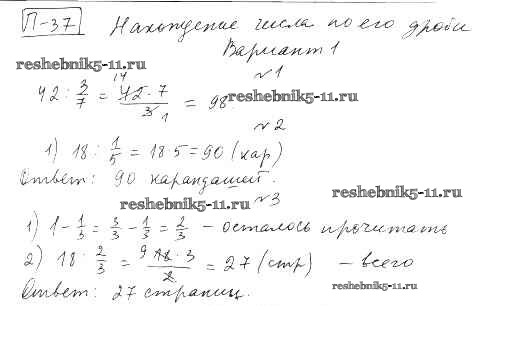 П-37 Нахождение числа по его дроби
Вариант 1
reshebnik5-11.ru
№1
42 : 3/7 = 42·7/3 = 98
14
1
reshebnik5-11.ru
№2
1) 18 : 1/5 = 18·5 = 90 (кар)
Ответ: 90 карандашей.
reshebnik5-11.ru
reshebnik5-11.ru
№3
1) 1 - 1/3 = 3/3 - 1/3 = 2/3 - осталось прочитать
2) 18 : 2/3 = 9 18·3/2 = 27 (стр) - всего
Ответ: 27 страниц.
reshebnik5-11.ru